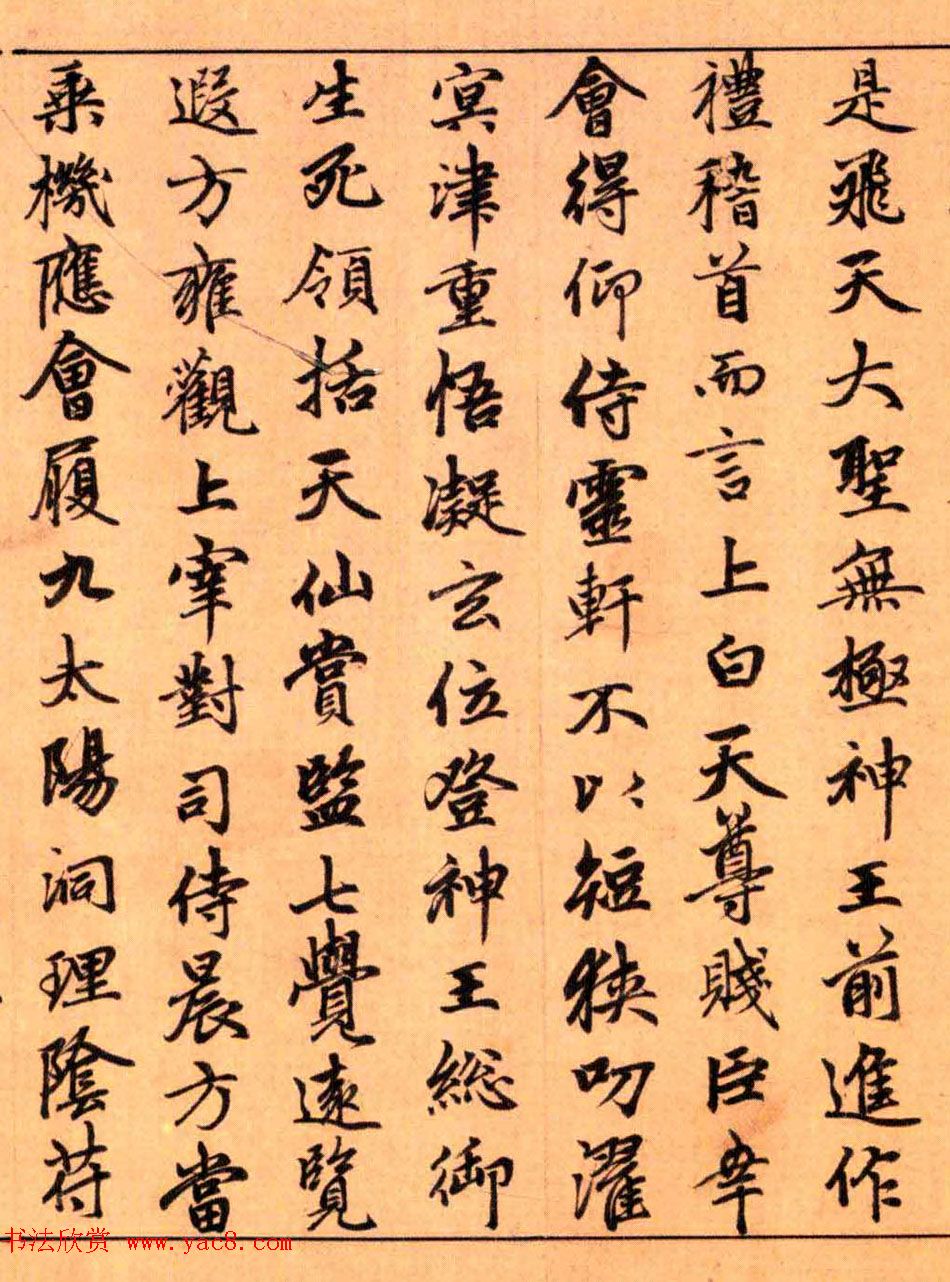 是飛天大聖無極神王前進作
禮稽首而言上白天尊賤臣幸
會得仰侍靈軒不以短狹叨濯
冥津重悟凝玄位登神王総御
生死領括天仙賞監七覺遠覽
遐方雍觀上宰對司侍晨方當
乗機應會履九太陽洞理陰苻
书法欣赏 www.yac8.com